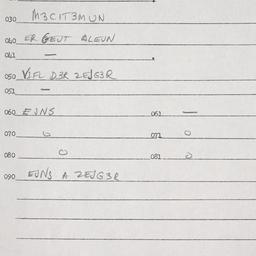 030 M3CIT3MUN
040 ER GEUT ALEUN
041 —
050 VIFL D3R ZEJG3R
051 —
060 EJNS 061 —
070 o 071 o
080 o 081 o
090 EJNS A ZEJG3R